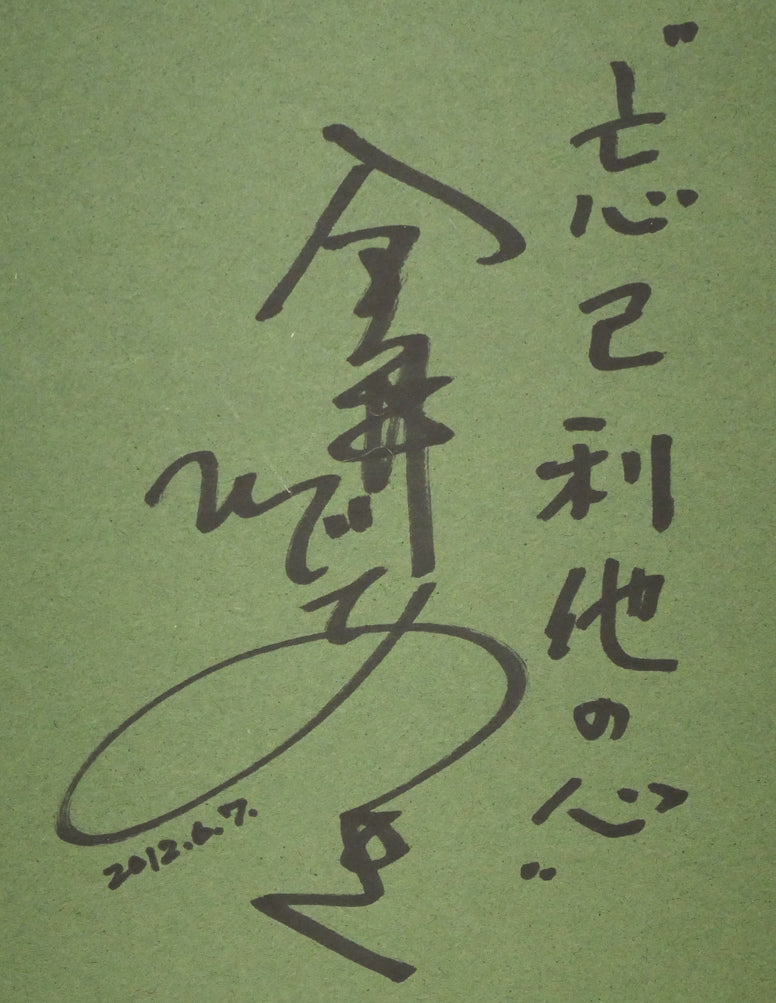 “忘己利他の心”
金井ひで
2012.6.7.